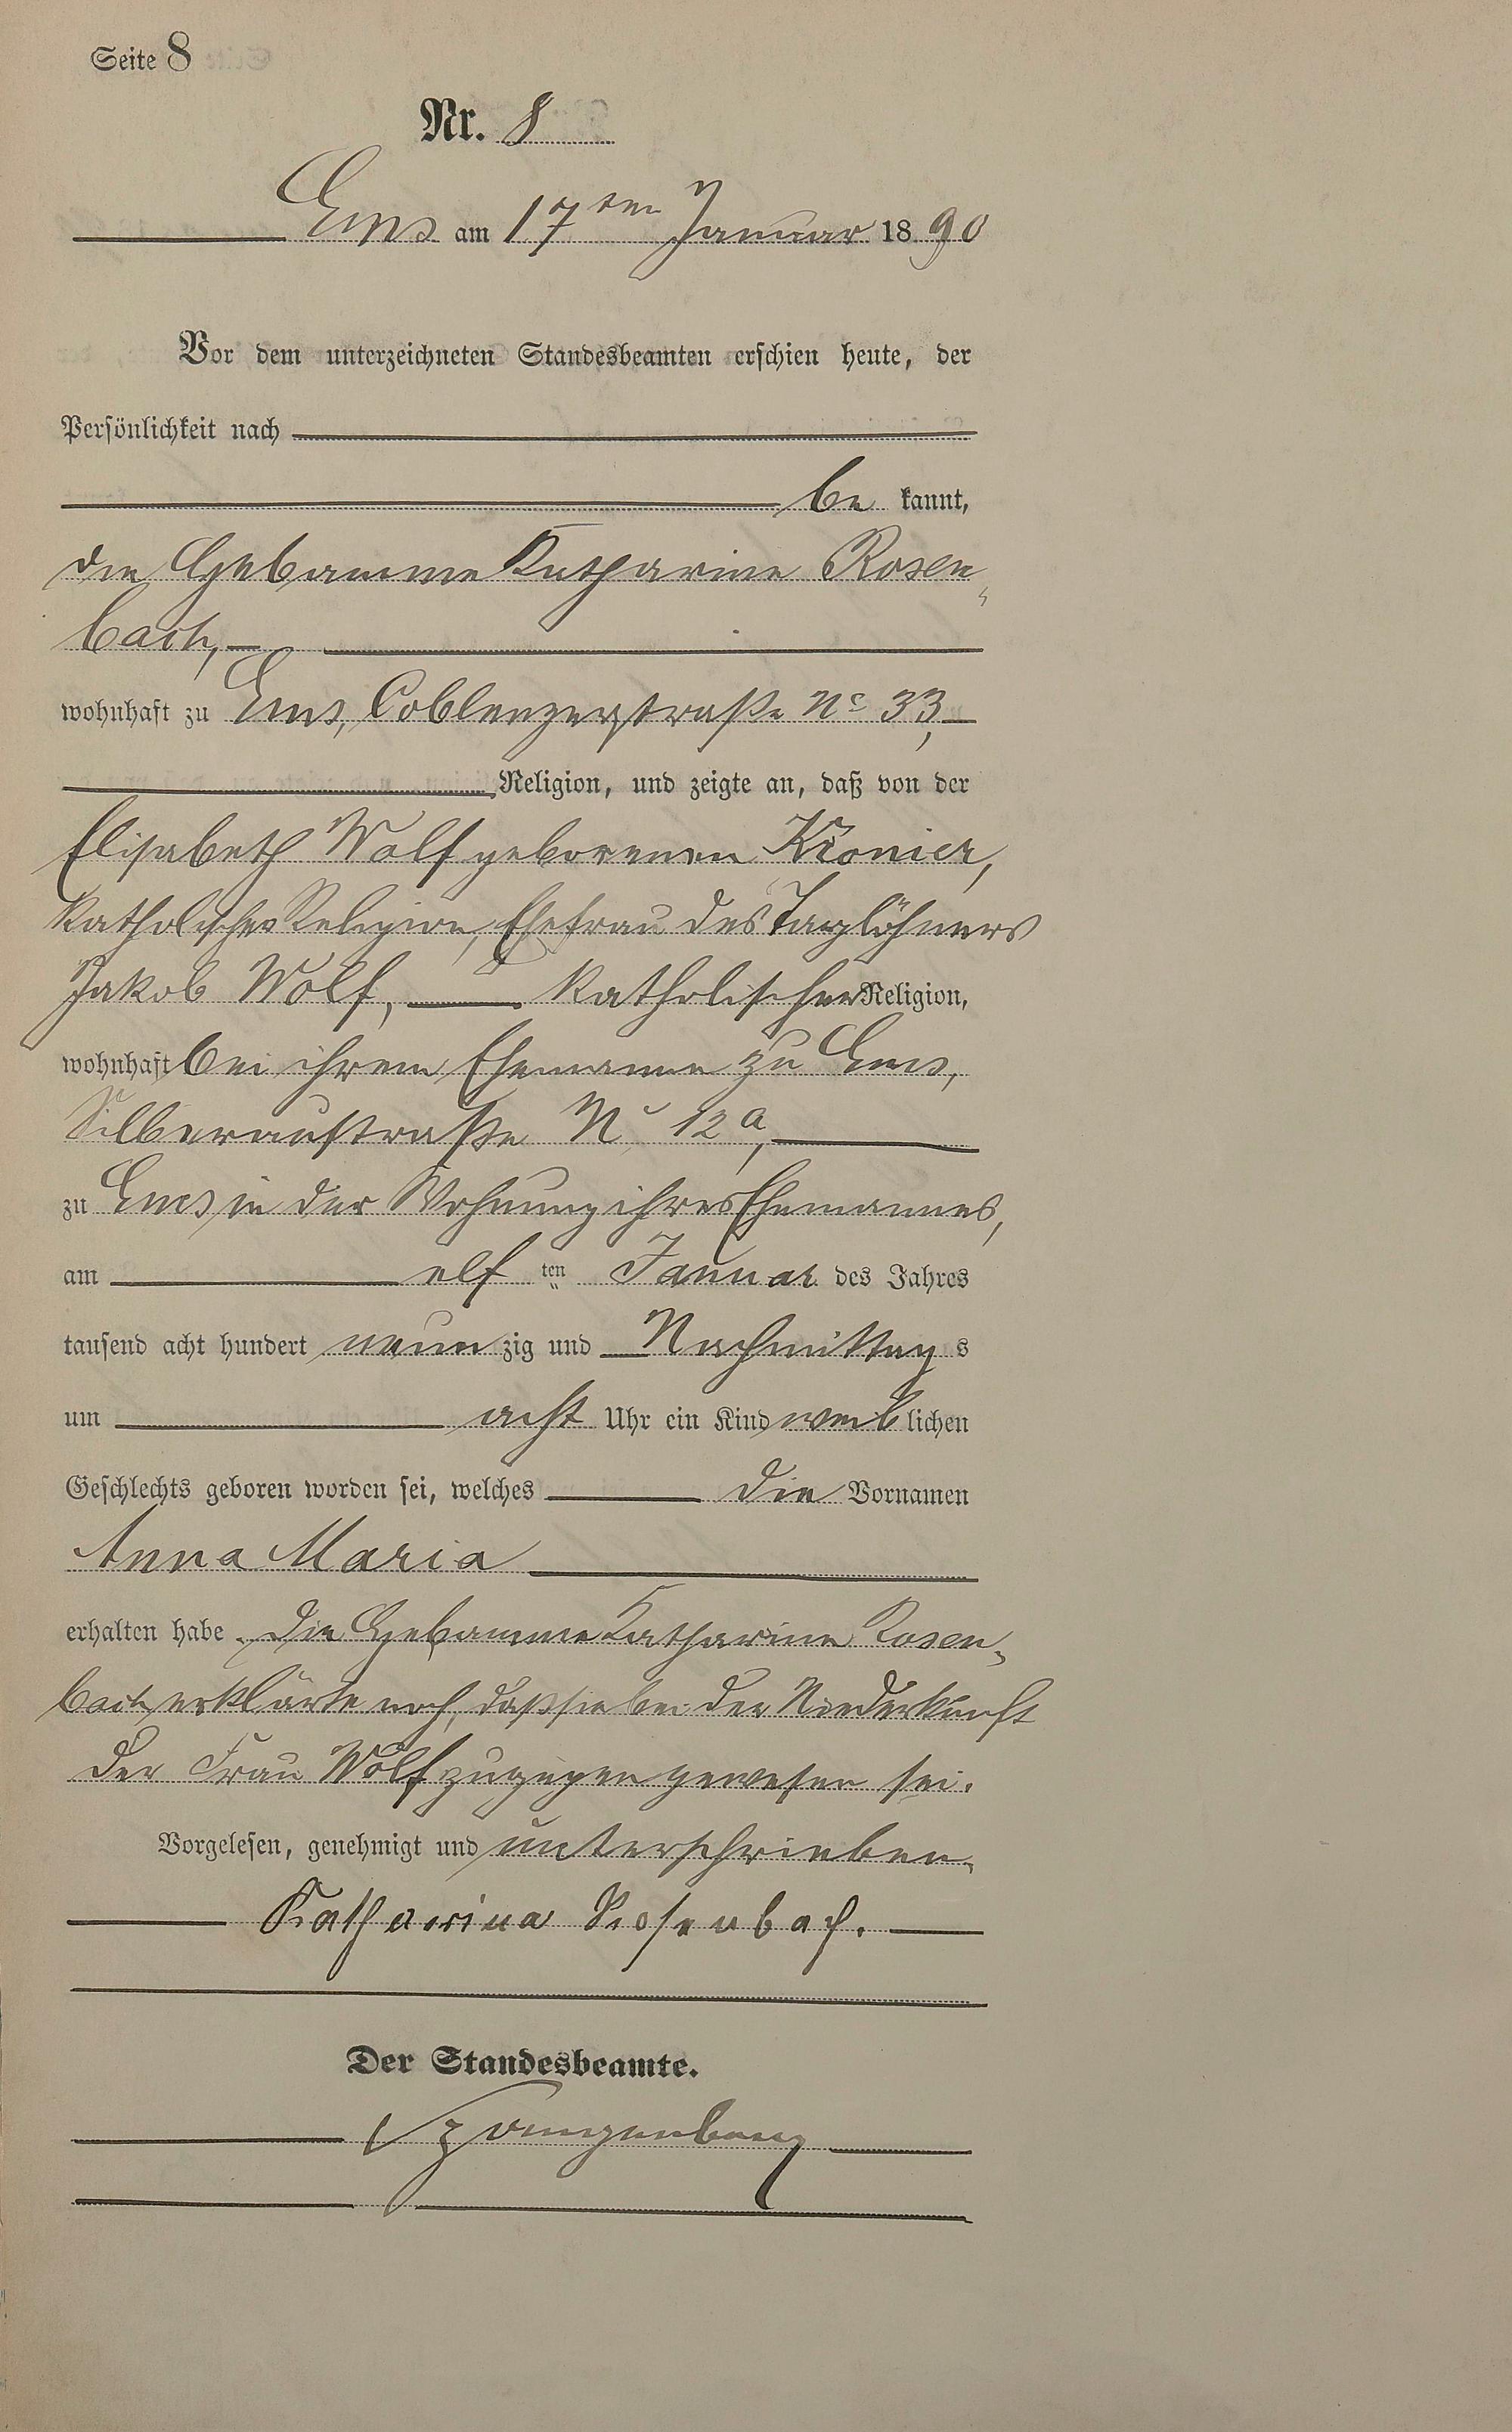 Seite 8
Nr. 8
Ems am 17ten Januar 1890
Vor dem unterzeichneten Standesbeamten erschien heute, der
Persönlichkeit nach
be kannt,
die Hebamme Katharina Rosen
bach,
wohnhaft zu Ems, Coblenzerstraße No 33,
Religion, und zeigte an, daß von der
Elisabeth Wolf geborenen Kronier,
katholischer Religion, Ehefrau des Taglöhners
Jakob Wolf, katholischer Religion,
wohnhaft bei ihrem Ehemanne zu Ems,
Silberaustraße No 12a,
zu Ems in der Wohnung ihres Ehemannes,
am elf ten Januar des Jahres
tausend acht hundert neun zig und Nachmittag s
um acht Uhr ein Kind weib lichen
Geschlechts geboren worden sei, welches die Vornamen
Anna Maria
erhalten habe. Die Hebamme Katharina Rosen-
bach erklärte noch, daß sie bei der Niederkunft
der Frau Wolf zugegen gewesen sei.
Vorgelesen, genehmigt und unterschrieben.
Katharina Rosenbach.
Der Standesbeamte.